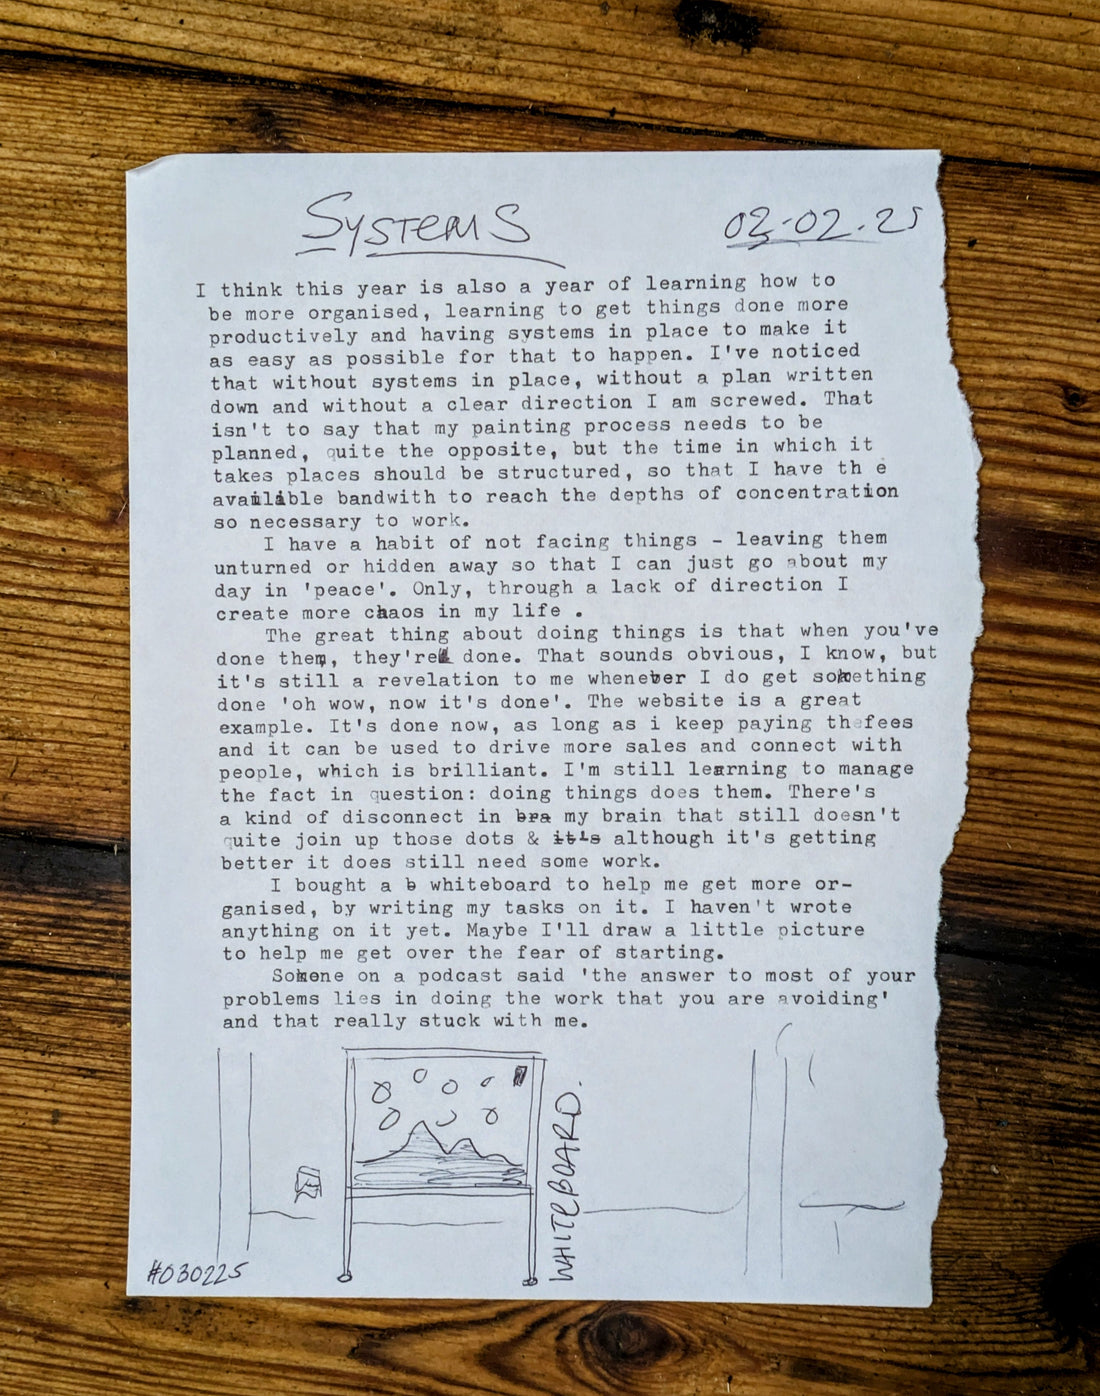 Systems 02-02.25
I think this year is also a year of learning how to
be more organised, learning to get things done more
productively and having systems in place to make it
as easy as possible for that to happen. I've noticed
that without systems in place, without a plan written
down and without a clear direction I am screwed. That
isn't to say that my painting process needs to be
planned, quite the opposite, but the time in which it
takes places should be structured, so that I have th e
availible bandwith to reach the depths of concentration
so necessary to work.
I have a habit of not facing things - leaving them
unturned or hidden away so that I can just go about my
day in 'peace'. Only, through a lack of direction I
create more chaos in my life .
The great thing about doing things is that when you've
done them, they're done. That sounds obvious, I know, but
it's still a revelation to me whenever I do get something
done 'oh wow, now it's done'. The website is a great
example. It's done now, as long as i keep paying the fees
and it can be used to drive more sales and connect with
people, which is brilliant. I'm still learning to manage
the fact in question: doing things does them. There's
a kind of disconnect in bra my brain that still doesn't
quite join up those dots & it's although it's getting
better it does still need some work.
I bought a b whiteboard to help me get more or-
ganised, by writing my tasks on it. I haven't wrote
anything on it yet. Maybe I'll draw a little picture
to help me get over the fear of starting.
Someone on a podcast said 'the answer to most of your
problems lies in doing the work that you are avoiding'
and that really stuck with me.
WHITEBOARD.
#030225